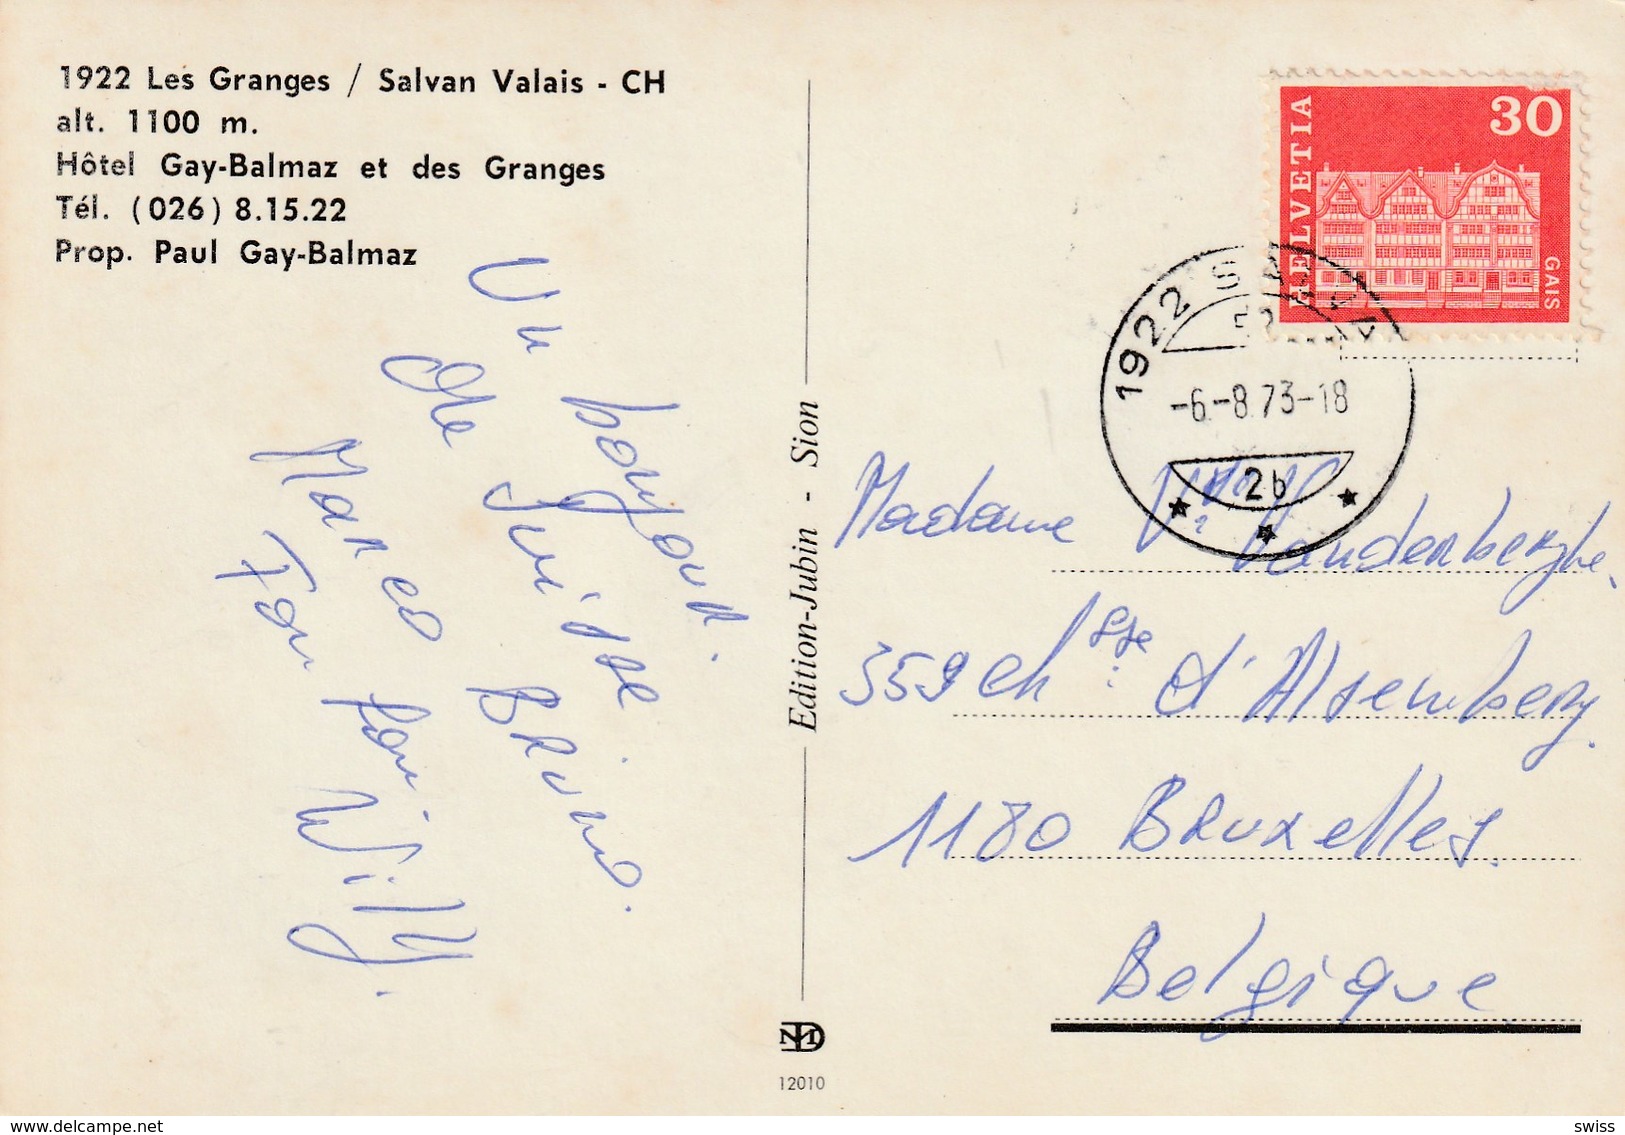 1922 Les Granges / Salvan Valais - CH
alt. 1100 m.
Hôtel Gay-Balmaz et des Granges
Tél. (026) 8.15.22
Prop. Paul Gay-Balmaz
Un bonjour.
de Suisse
Marco Bruno.
Fany
Willy.
Edition-Jubin - Sion
12010
HELVETIA
30
GAIS
1922 SALVA
-6.-8.73-18
2b
Madame Vandenberghe.
359 Ch sse: d'Alsemberg.
1180 Bruxelles.
Belgique
www.delcampe.net
swiss